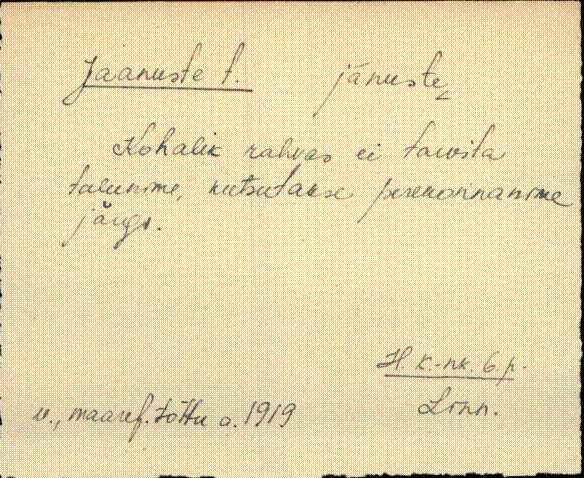 Jaanuste t. jānuste
Kohalik rahvas ei tarvita
talunime, kutsutakse perekonnanime
järgi.
H. k.-nk. 6. p.
Lonn.
u., maaref. tõttu a. 1919